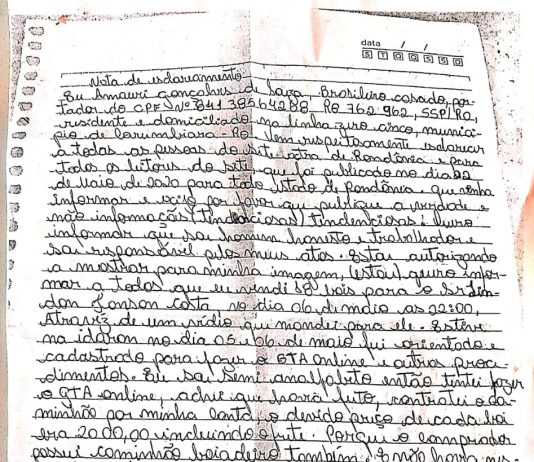 data / /
S T Q Q S S D
Nota de esclarecimento
Eu Amauri Gonçalves de Souza, Brasileiro casado, por-
tador do CPF Nº 84138564288, RG 762 962, SSP/RO,
residente e domiciliado na linha zero cinco, municí-
pio de Corumbiara-RO. Vem respeitosamente esclarecer
a todas as pessoas do site de Rondônia e para
todos os leitores do site que foi publicado no dia 22
de Maio de 2020 para todo estado de Rondônia. que venha
informar e por favor que publique a verdade e
não informações (tindenciosas) tindenciosas: quero
informar que sou homem honesto e trabalhador e
sou responsável pelos meus atos. Estou autorizando
a mostrar para minha imagem, (estou) quero infor-
mar a todos que eu vendi 18 bois para o Sr Lin-
don Jonson Costa no dia 06 de maio as 22:00,
Atravéz de um vídio que mondei para ele. Estive
na idaron no dia 05 e 06 de maio fui orientado e
cadastrado para fazer o GTA online e outros proce-
dimentos. Eu sou semi analfabeto então tentei fazer
o GTA online, achei que havia feito, contratei o ca-
minhão por minha conta, o devido preço de cada boi
era 2000,00 incluindo o frete. Porque o comprador
possui caminhão boiadeiro também. E não havia